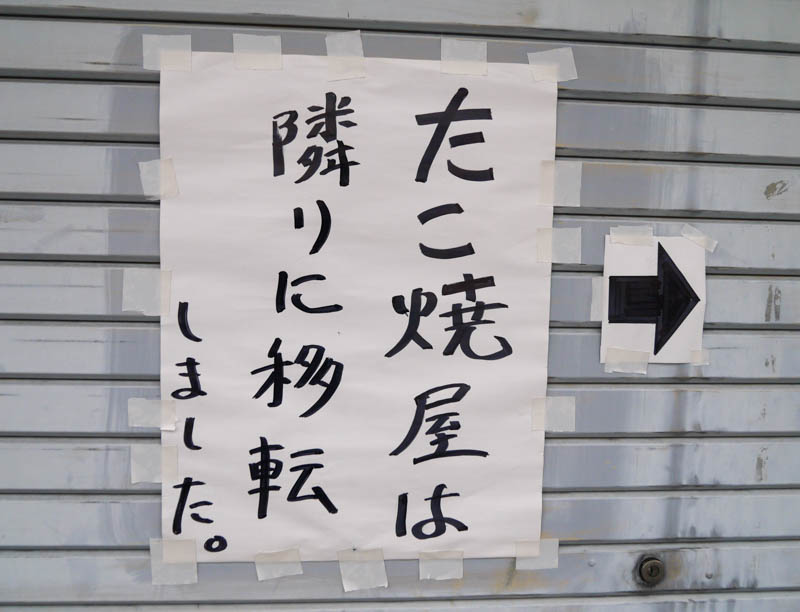 たこ焼屋は
隣りに移転
しました。